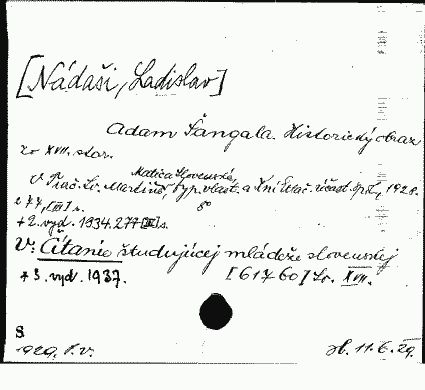 [Nádaši, Ladislav]
Adam Šangala. Historický obraz
zo XVII. stor.
Matica Slovenská,
V Turč. Sv. Martine, typ. vlast. a Kní účast. spol., 1928.
277, [III] s. 8°
+ 2. vyd. 1934. 277 [III] s.
V: Čítanie študujúcej mládeže slovenskej
+ 3. vyd. 1937. [61760] Sv. XVII.
S
1929. P. v. H. 11. 6. 29.